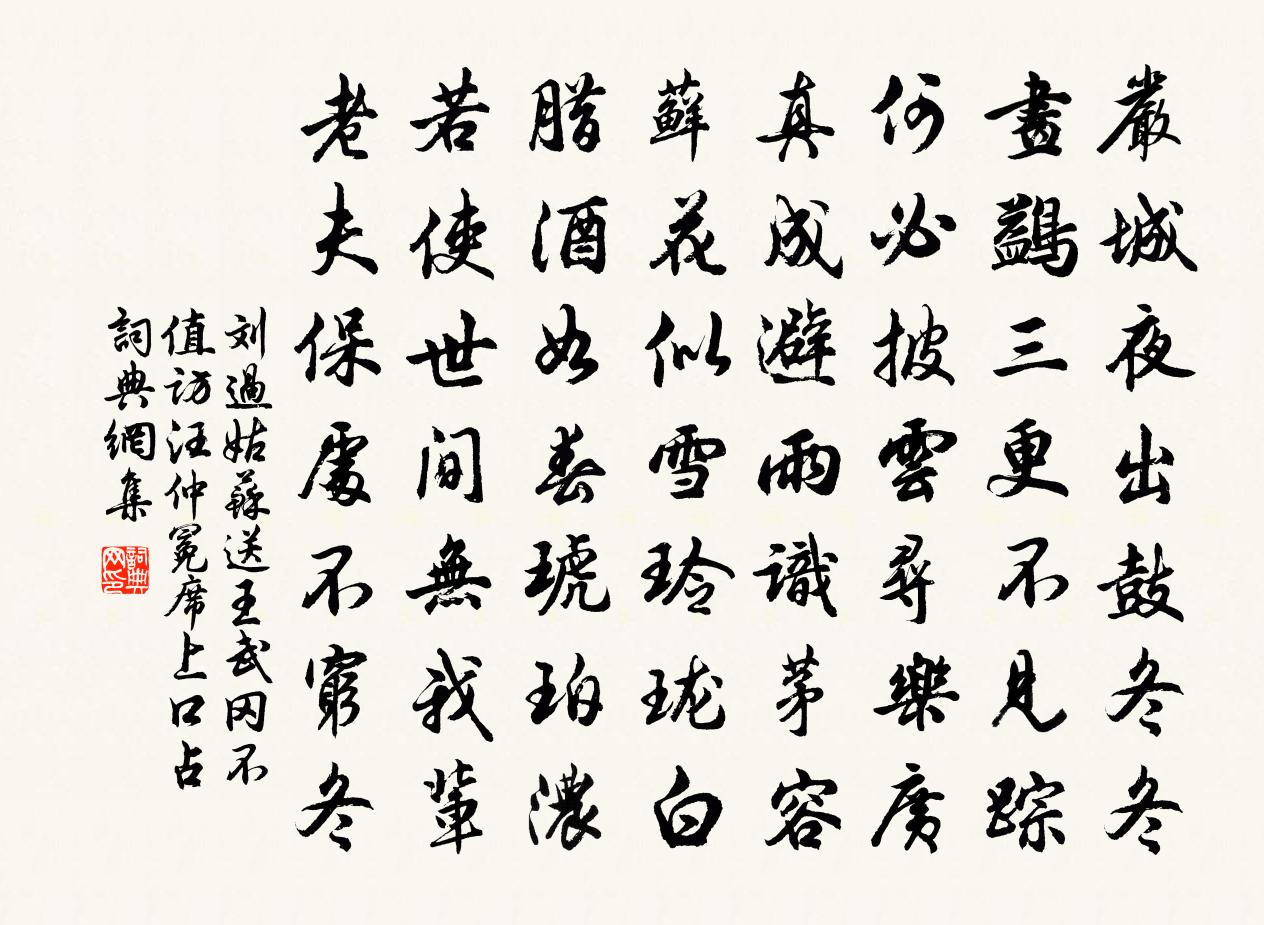 嚴城夜出鼓冬冬
畫鷁三更不見踪
何必披雲尋樂廣
真成避雨識茅容
蘚花似雪玲珑白
腊酒如春琥珀濃
若使世間無我輩
老夫保處不窮冬
刘過姑蘇送王武冈不
值訪汪仲冕席上口占
詞典網集
詞典网印